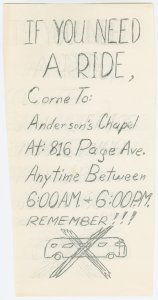 IF YOU NEED
A RIDE,
Come To:
Anderson's Chapel
At: 816 Page Ave.
Anytime Between
6:00AM + 6:00PM.
REMEMBER!!!